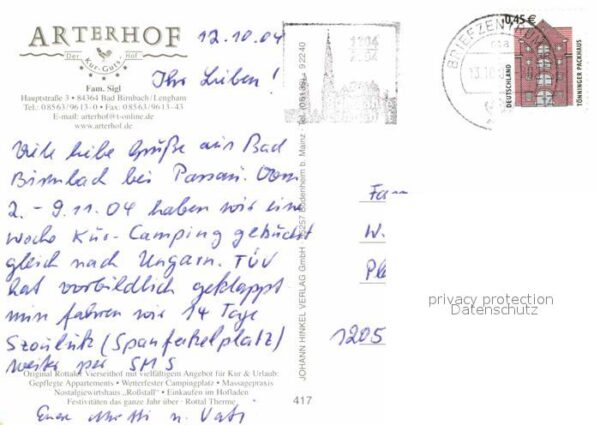 ARTERHOF
Der Kur-Guts-Hof
Fam. Sigl
Hauptstraße 3 • 84364 Bad Birnbach/Lengham
Tel.: 08563/9613-0 • Fax: 08563/9613-43
E-mail: arterhof@t-online.de
www.arterhof.de
12.10.04
Ihr Lieben!
Viele liebe Grüße aus Bad
Birnbach bei Passau. Vom
2.-9.11.04 haben wir eine
Woche Kur-Camping gebucht
gleich nach Ungarn. TÜV
hat vorbildlich geklappt
nun fahren wir 14 Tage
(Spanferkelplatz)
weiter per SMS
Original Rottaler Vierseithof mit vielfältigem Angebot für Kur & Urlaub:
Gepflegte Appartements • Wetterfester Campingplatz • Massagepraxis
Nostalgiewirtshaus „Roßstall“ • Einkaufen im Hofladen
Festivitäten das ganze Jahr über • Rottal Therme
Eure Mutti u. Vati
JOHANN HINKEL VERLAG GmbH · 55257 Budenheim b. Mainz Tel. (06139) 92240
417
1704
2004
BRIEFZENTRUM
0,45 €
DEUTSCHLAND
TÖNNINGER PACKHAUS
Fam
W.
Ple
1205
privacy protection
Datenschutz